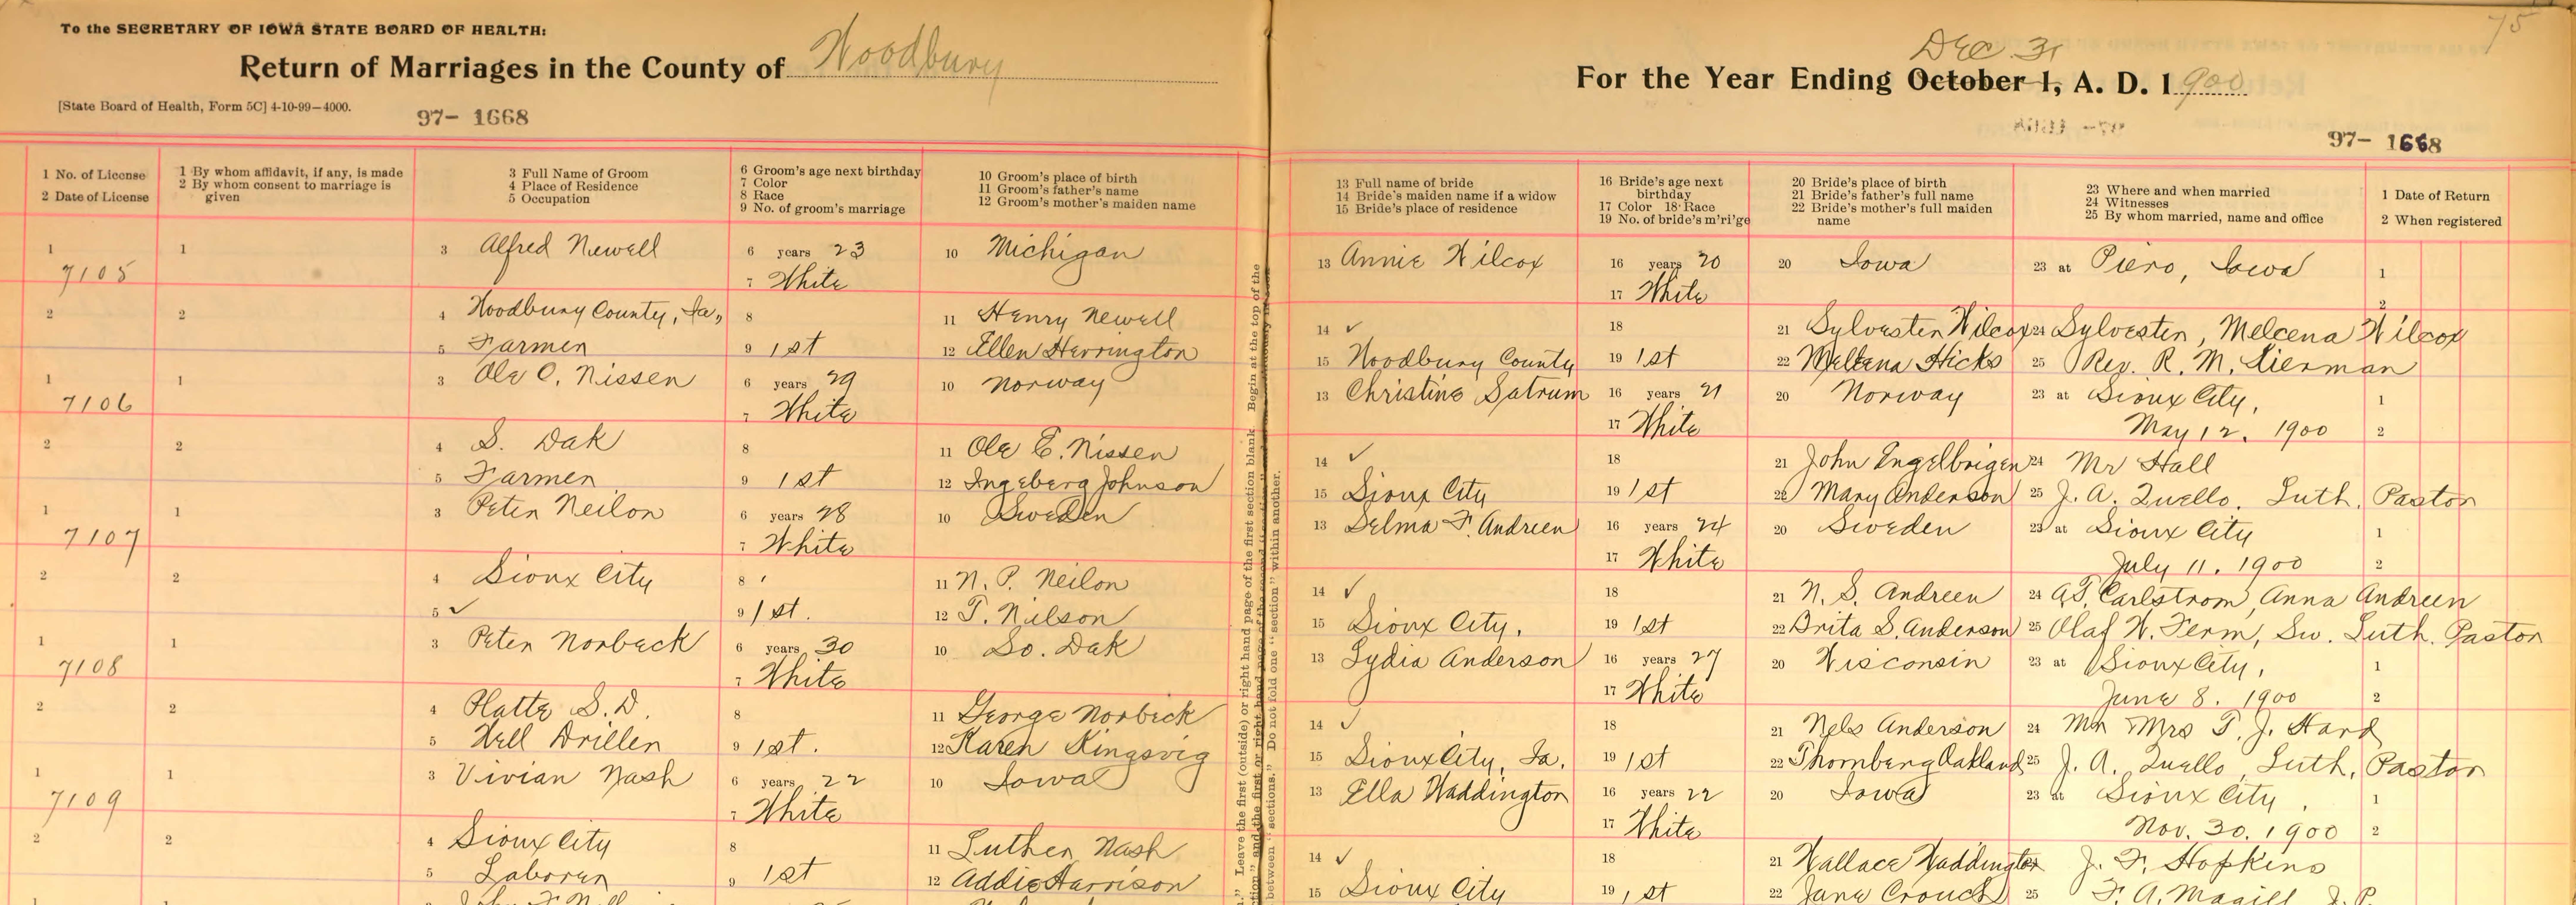 To the SECRETARY OF IOWA STATE BOARD OF HEALTH:
Return of Marriages in the County of Woodbury
[State Board of Health, Form 5C] 4-10-99—4000.
97- 1668
1 No. of License
2 Date of License
1 By whom affidavit, if any, is made
2 By whom consent to marriage is given
3 Full Name of Groom
4 Place of Residence
5 Occupation
6 Groom's age next birthday
7 Color
8 Race
9 No. of groom's marriage
10 Groom's place of birth
11 Groom's father's name
12 Groom's mother's maiden name
1 7105
1
3 Alfred Newell
6 years 23
7 White
10 Michigan
2
2
4 Woodbury County, Ia,
8
11 Henry Newell
5 Farmer
9 1st
12 Ellen Herrington
1 7106
1
3 Ole C. Nissen
6 years 29
7 White
10 Norway
2
2
4 S. Dak
8
11 Ole E. Nissen
5 Farmer
9 1st
12 Ingeberg Johnson
1 7107
1
3 Peter Neilon
6 years 28
7 White
10 Sweden
2
2
4 Sioux City
8
11 N. P. Neilon
5 ✓
9 1st.
12 T. Nilson
1 7108
1
3 Peter Norbeck
6 years 30
7 White
10 So. Dak
2
2
4 Platte S.D.
8
11 George Norbeck
5 Well Driller
9 1st.
12 Karen Kingsvig
1 7109
1
3 Vivian Nash
6 years 22
7 White
10 Iowa
2
2
4 Sioux City
8
11 Luther Nash
5 Laborer
9 1st
12 Addie Harrison
75
Dec 31
For the Year Ending October 1, A. D. 1900
97- 1668
13 Full name of bride
14 Bride's maiden name if a widow
15 Bride's place of residence
16 Bride's age next birthday
17 Color 18 Race
19 No. of bride's m'ri'ge
20 Bride's place of birth
21 Bride's father's full name
22 Bride's mother's full maiden name
23 Where and when married
24 Witnesses
25 By whom married, name and office
1 Date of Return
2 When registered
13 Annie Wilcox
16 years 20
17 White
20 Iowa
23 at Piero, Iowa
1
2
14 ✓
18
21 Sylvester Wilcox
24 Sylvester, Melcena Wilcox
15 Woodbury County
19 1st
22 Hicks
25 Rev. R. M.
13 Christine Satrum
16 years 21
17 White
20 Norway
23 at Sioux City,
May 12. 1900
1
2
14 ✓
18
21 John Engelbrigen
24 Mr Hall
15 Sioux City
19 1st
22 Mary Anderson
25 J. A. Quello. Luth. Pastor
13 Selma F. Andreen
16 years 24
17 White
20 Sweden
23 at Sioux City
July 11. 1900
1
2
14 ✓
18
21 N. S. Andreen
24 Carlstrom, Anna Andreen
15 Sioux City.
19 1st
22 Brita S. Anderson
25 Olaf N. Ferm, Sw. Luth. Pastor
13 Lydia Anderson
16 years 27
17 White
20 Wisconsin
23 at Sioux City,
June 8. 1900
1
2
14 ✓
18
21 Nels Anderson
24 Mr Mrs T. J. Hard
15 Sioux City, Ia.
19 1st
22 Thornberg Oakland
25 J. A. Quello, Luth, Pastor
13 Ella Waddington
16 years 22
17 White
20 Iowa
23 at Sioux City.
Nov. 30. 1900
1
2
14 ✓
18
21 Wallace Waddington
J. F. Hopkins
15 Sioux City
19 1st
22 Jane Crouch
25 F. A. Magill J. P.